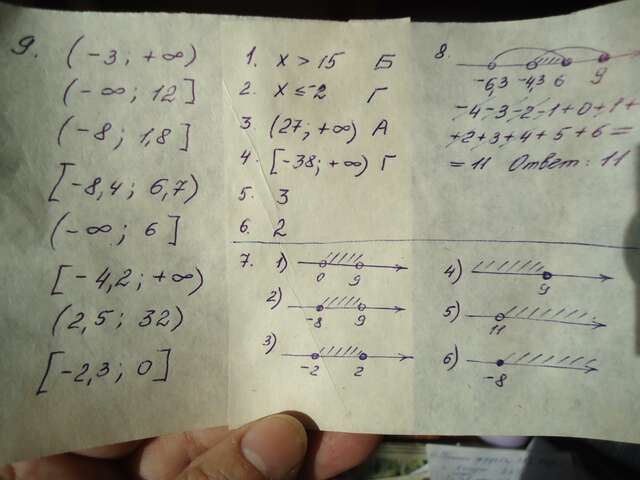 9. (-3; +∞)
(-∞; 12]
(-8; 1,8]
[-8,4; 6,7)
(-∞; 6]
[-4,2; +∞)
(2,5; 32)
[-2,3; 0]
1. x > 15 Б
2. x ≤ -2 Г
3. (27; +∞) А
4. [-38; +∞) Г
5. 3
6. 2
7. 1) 0 9
2) -8 9
3) -2 2
4) 9
5) 11
6) -8
8. -6,3 -4,3 6 9
-4-3-2-1+0+1+
+2+3+4+5+6=
=11 Ответ: 11